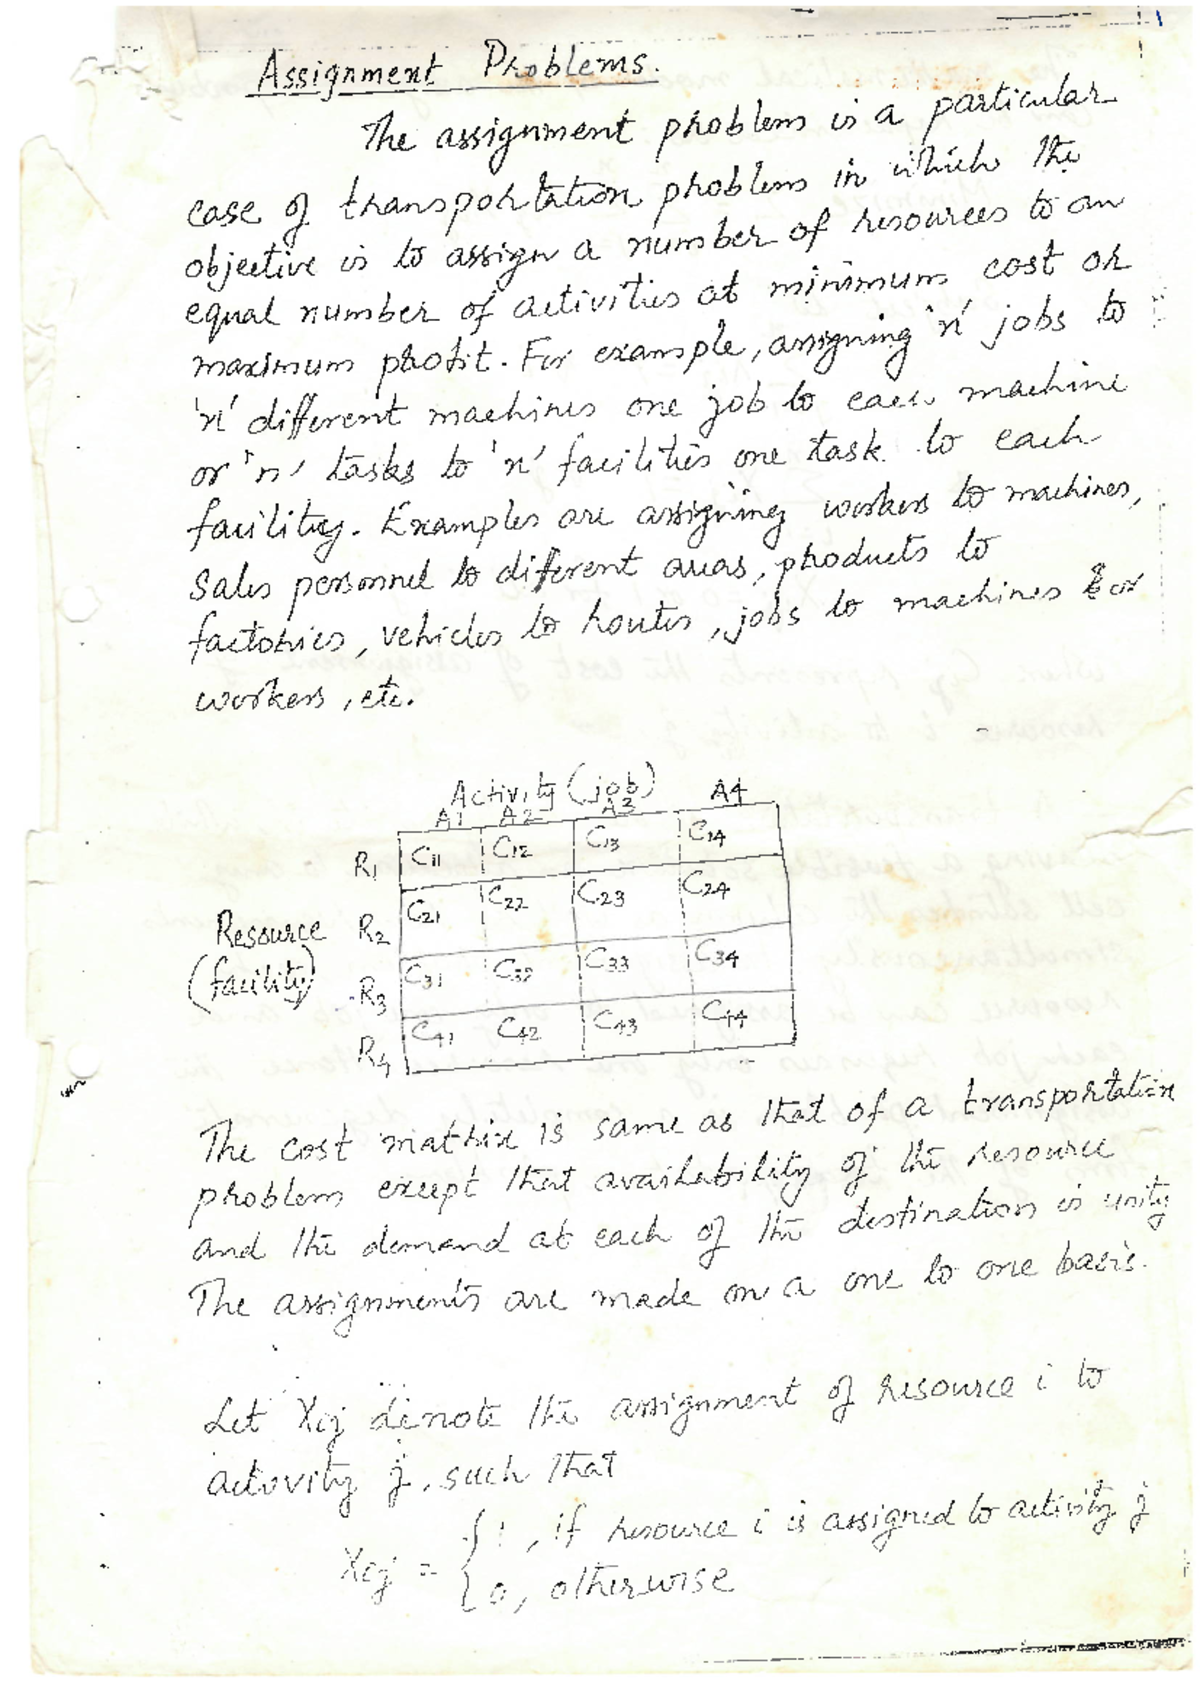 Assignment Problems.
The assignment problem is a particular
case of transportation problem in which the
objective is to assign a number of resources to an
equal number of activities at minimum cost or
maximum profit. For example, assigning 'n' jobs to
'n' different machines one job to each machine
or 'n' tasks to 'n' facilities one task to each
facility. Examples are assigning workers to machines,
Sales personnel to different areas, products to
factories, vehicles to routes, jobs to machines or
workers, etc.
Activity (job)
A1 A2 A3 A4
R1 C11 C12 C13 C14
R2 C21 C22 C23 C24
Resource
(facility)
R3 C31 C32 C33 C34
R4 C41 C42 C43 C44
The cost matrix is same as that of a transportation
problem except that availability of the resource
and the demand at each of the destination is unity
The assignments are made on a one to one basis.
Let Xij denote the assignment of resource i to
activity j, such that
Xij = { 1, if resource i is assigned to activity j
0, otherwise